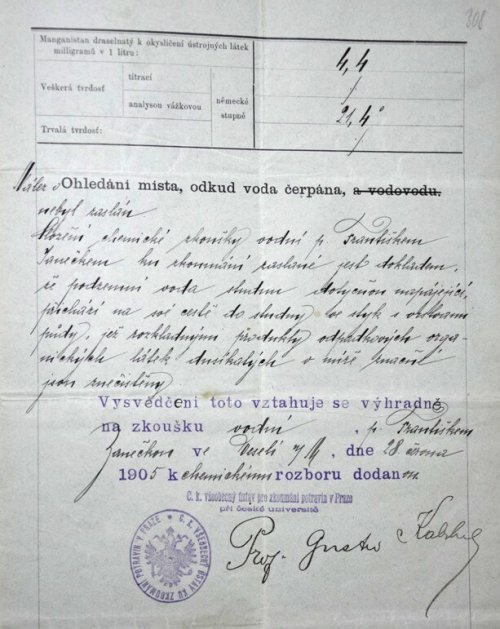 308
Manganistan draselnatý k okysličení ústrojných látek
milligramů v 1 litru:
4,4
Veškerá tvrdost
titrací
analysou vážkovou
německé
stupně
/
21,4°
Trvalá tvrdosť:
/
Nález o Ohledání místa, odkud voda čerpána, a vodovodu.
nebyl zaslán
Složení chemické zkoušky vodní p. Františkem
Janečkem ku zkoumání zaslané jest dokladem,
že podzemní voda studnu dotyčnou napájející,
přichází na své cestě do studny ve styk s vrstvami
půdy, jež rozkladnými produkty odpadkových orga-
nických látek dusíkatých v míře značné
jsou znečistěny
Vysvědčení toto vztahuje se výhradně
na zkoušku vodní, p. Františkem
Janečkem ve Veselí n/M, dne 28 června
1905 k chemickému rozboru dodanou.
C. k. všeobecný ústav pro zkoumání potravin v Praze
při české universitě
Prof. Gustav Kabrhel
C. K. VŠEOBECNÝ ÚSTAV KU ZKOUMÁNÍ POTRAVIN V PRAZE